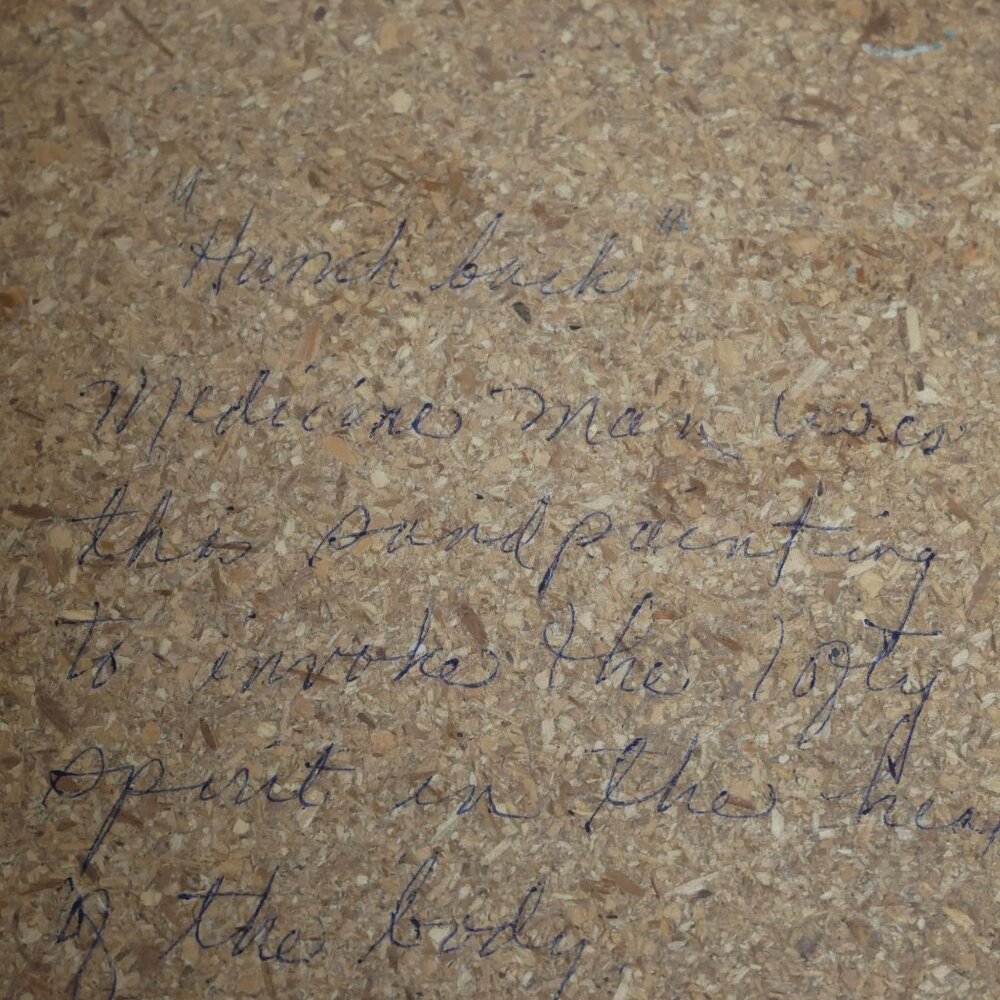 "Hunch back"
Medicine man uses
this sandpainting
to invoke the lofty
spirit in the
of the body.